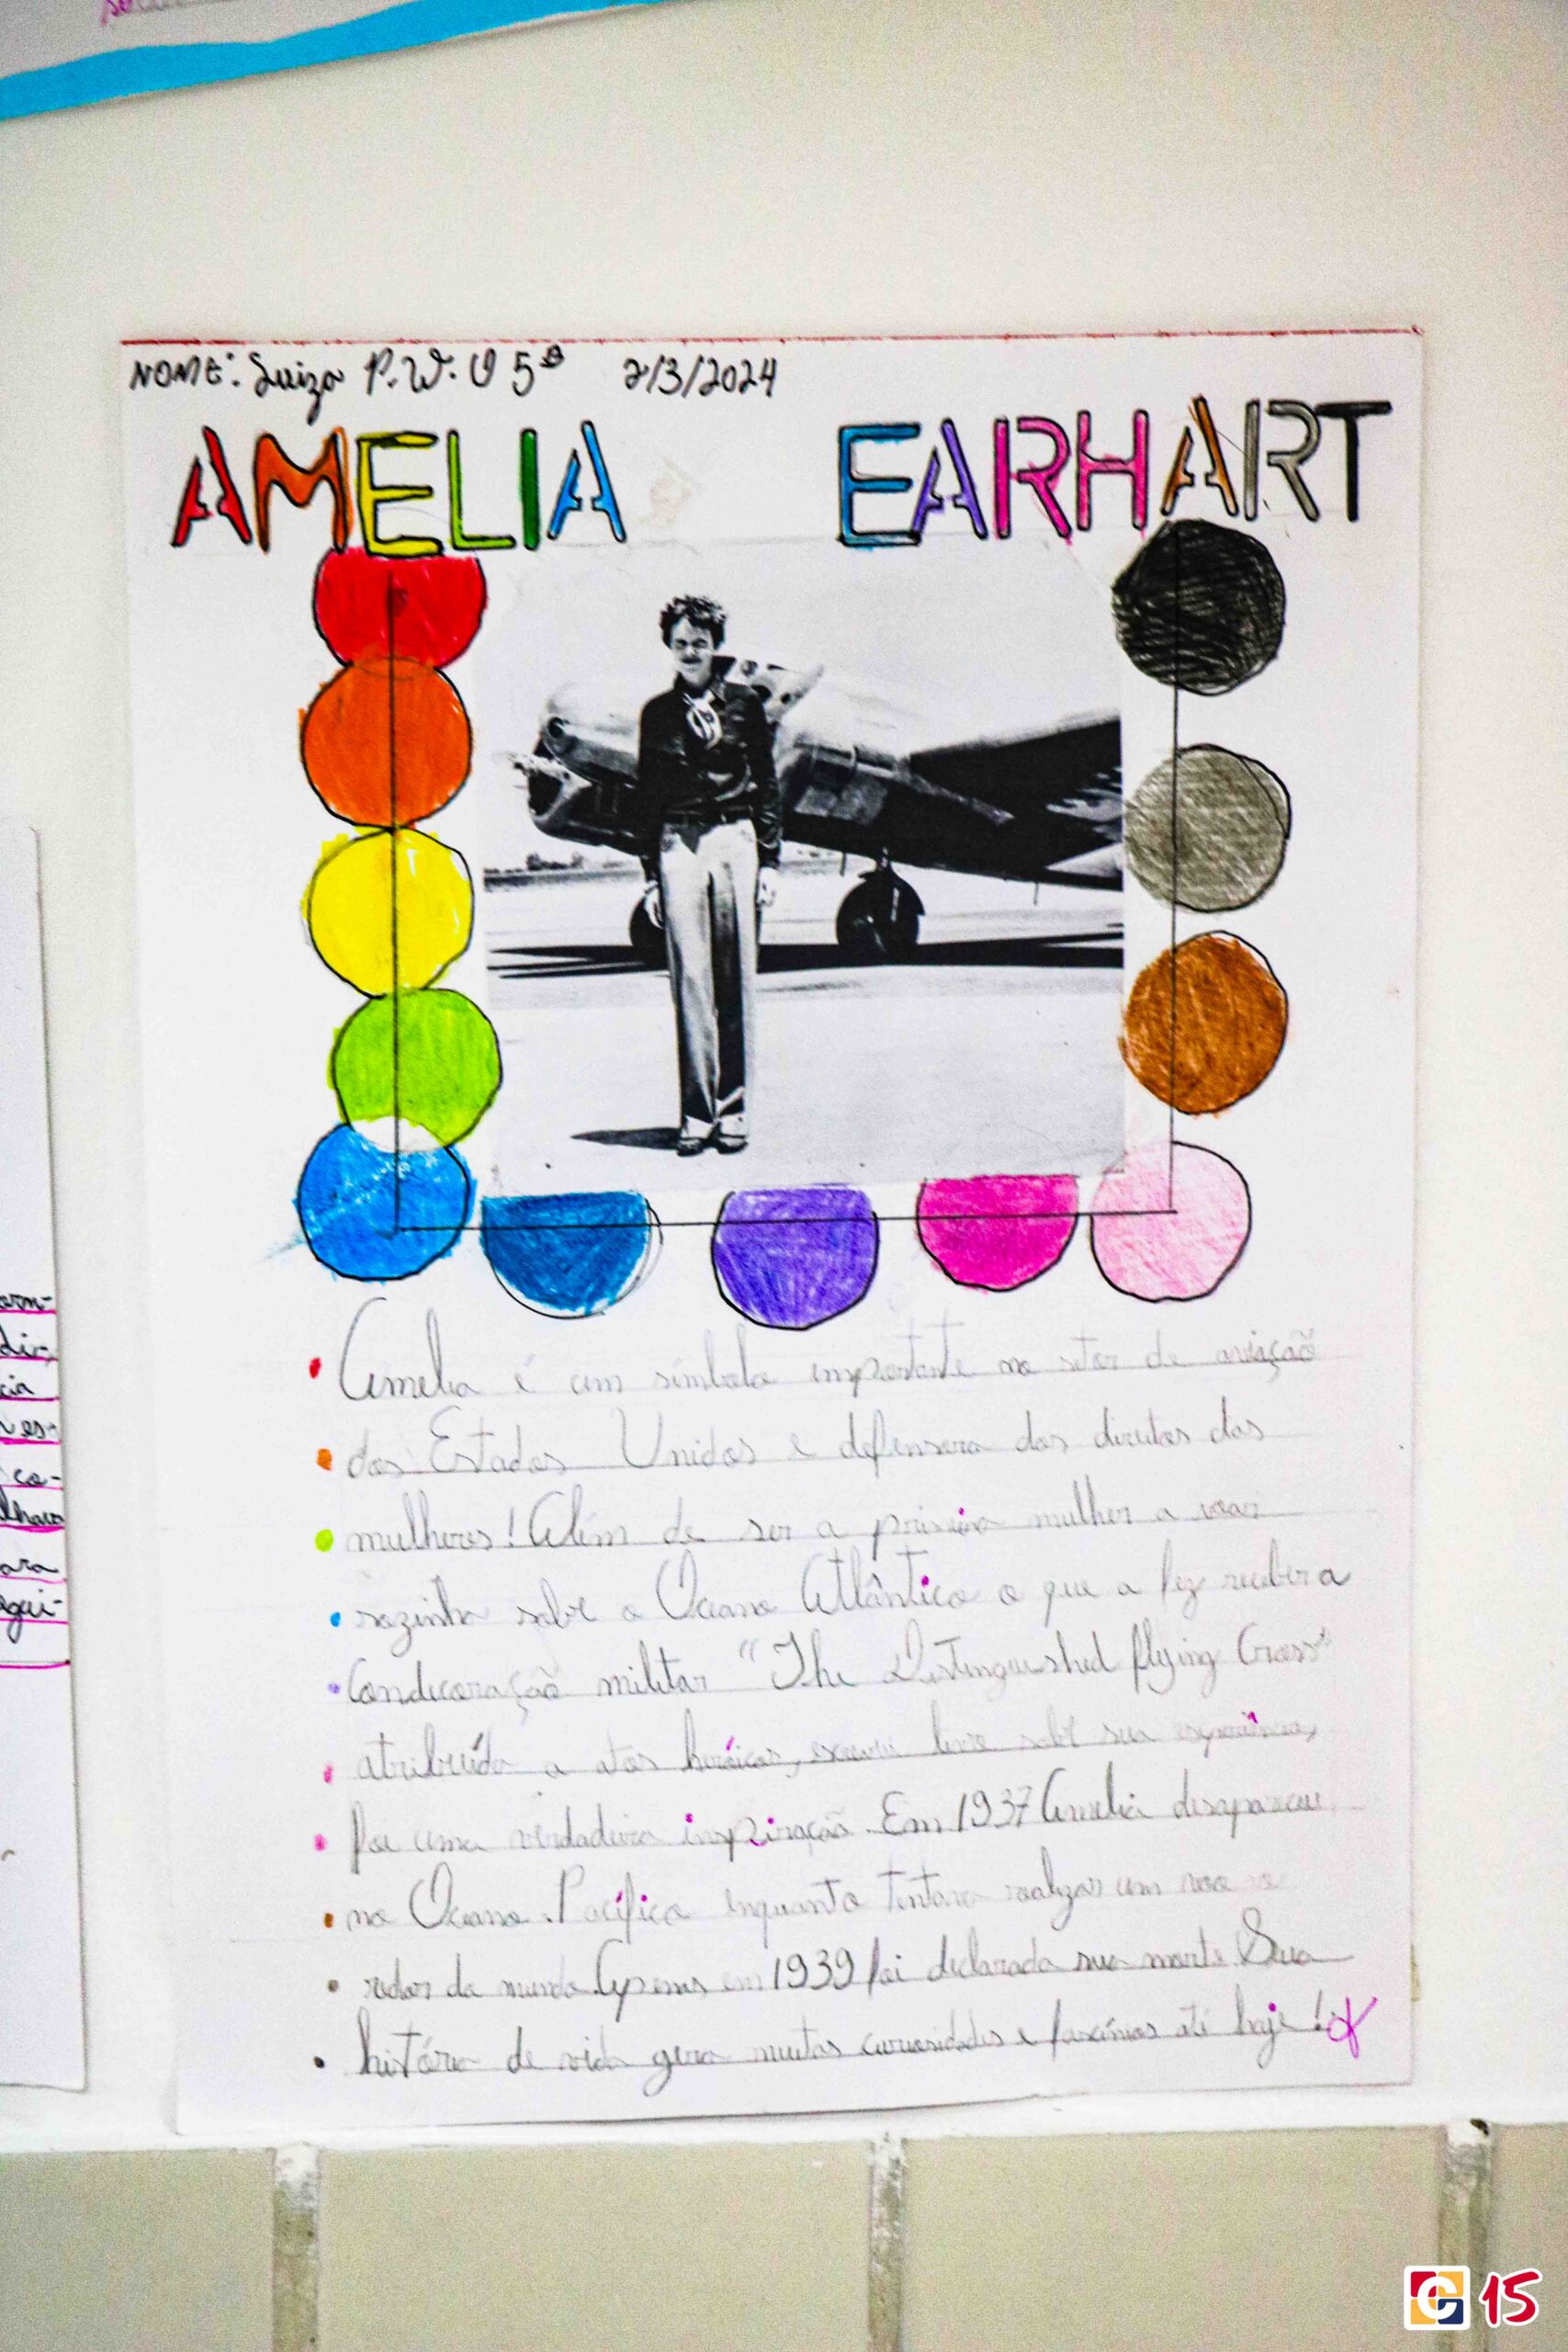 NOME: Luiza P. W. O 5º 2/3/2024
AMELIA EARHART
Amelia é um símbolo importante no setor de aviação
dos Estados Unidos e defensora dos direitos das
mulheres! Além de ser a primeira mulher a voar
sozinha sobre o Oceano Atlântico o que a fez receber a
Condecoração militar "The Distinguished flying Cross"
atribuída a atos heróicos, escreveu livro sobre sua experiência,
foi uma verdadeira inspiração. Em 1937 Amelia desapareceu
no Oceano Pacífico enquanto tentava realizar um voo
redor do mundo. Apenas em 1939 foi declarada sua morte. Sua
história de vida gera muitas curiosidades e fascínios até hoje!
orm-
dir,
cia
es-
co-
lhava
ara
egui-
G 15